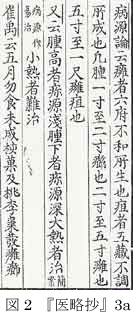 病源論云癰者六府不和所生也疽者五藏不調
所成也凢腫一寸至二寸癤也二寸至五寸癰也
五寸至一尺癰疽也
又云腫高者疹源淺腫下者疹源深大熱者治
小熱者難治
崔禹云五月勿食未成核菓及桃李棗發癰癤
図2 『医略抄』3a